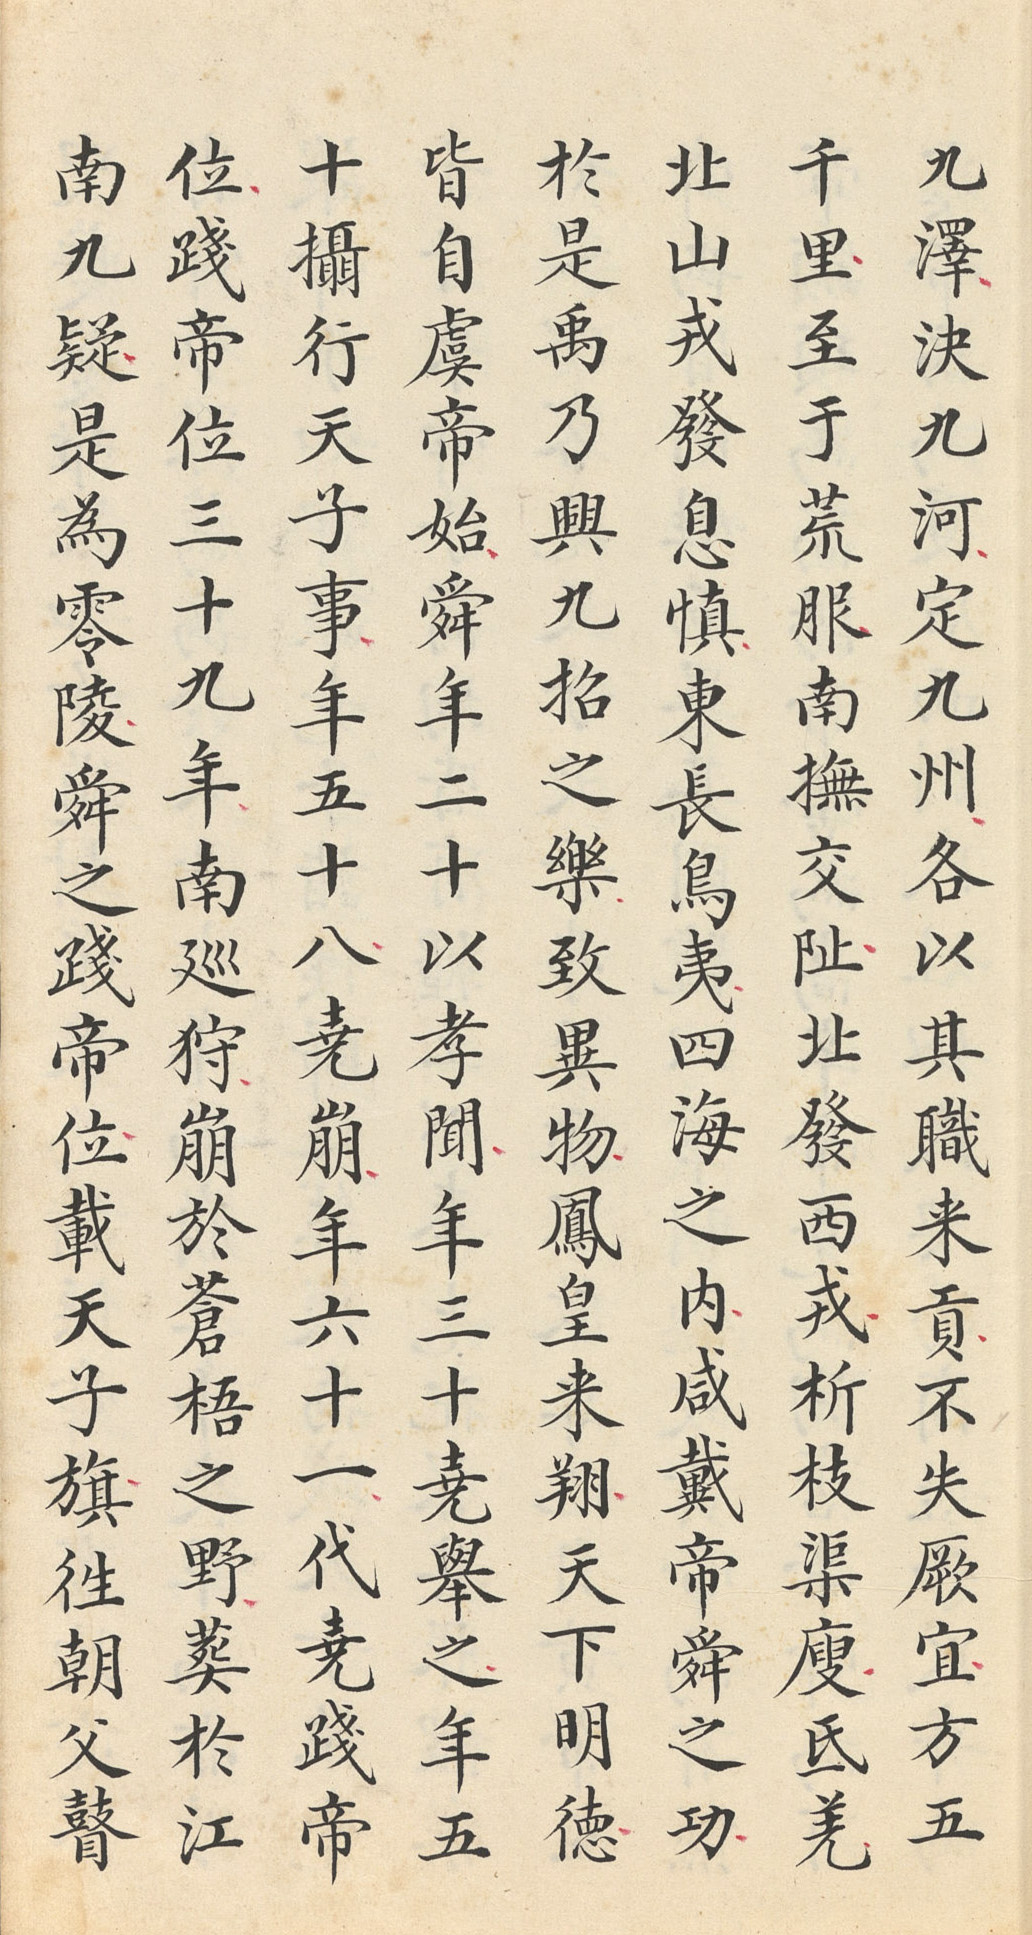 九澤決九河定九州各以其職来貢不失厥宜方五
千里至于荒服南撫交阯北發西戎析枝渠廋氐羌
北山戎發息慎東長鳥夷四海之内咸戴帝舜之功
於是禹乃興九招之樂致異物鳳皇来翔天下明徳
皆自虞帝始舜年二十以孝聞年三十堯舉之年五
十攝行天子事年五十八堯崩年六十一代堯踐帝
位踐帝位三十九年南巡狩崩於蒼梧之野葬於江
南九疑是為零陵舜之踐帝位載天子旗徃朝父瞽